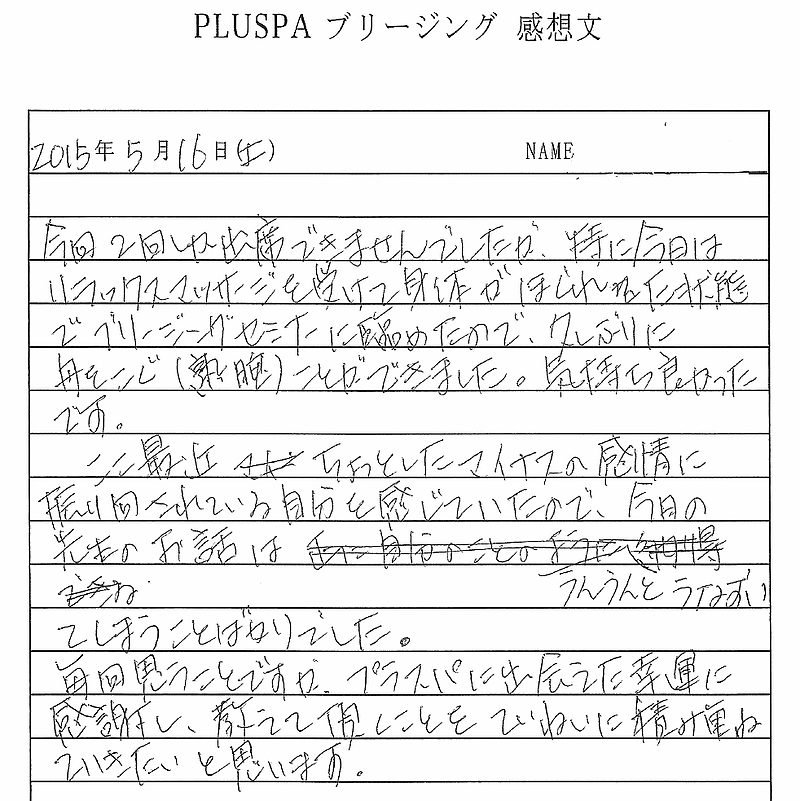 PLUSPA ブリージング 感想文
2015年 5月16日(土) NAME
今回 2回しか出席できませんでしたが、特に今日は
リラックスマッサージを受けて身体がほぐれた状態
でブリージングセミナーに臨めたので、久しぶりに
(熟睡)ことができました。気持ち良かった
です。
ここ最近 ちょっとしたマイナスの感情に
振り回されている自分を感じていたので、今日の
先生のお話は 自分のことの
うんうんと うなずい
てしまうことばかりでした。
毎回思うことですが、プラスパに出会えた幸運に
感謝し、教えて頂くことをていねいに積み重ね
ていきたいと思います。